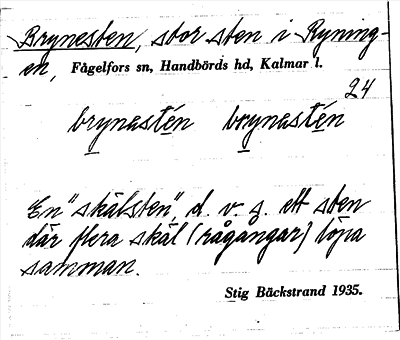 Brynesten, stor sten i Ryning-
en, Fågelfors sn, Handbörds hd, Kalmar l.
24
brynəstén brynəstén
En "skälsten", d. v. s. ett sten
där flera skäl (rågångar) löpa
samman.
Stig Bäckstrand 1935.